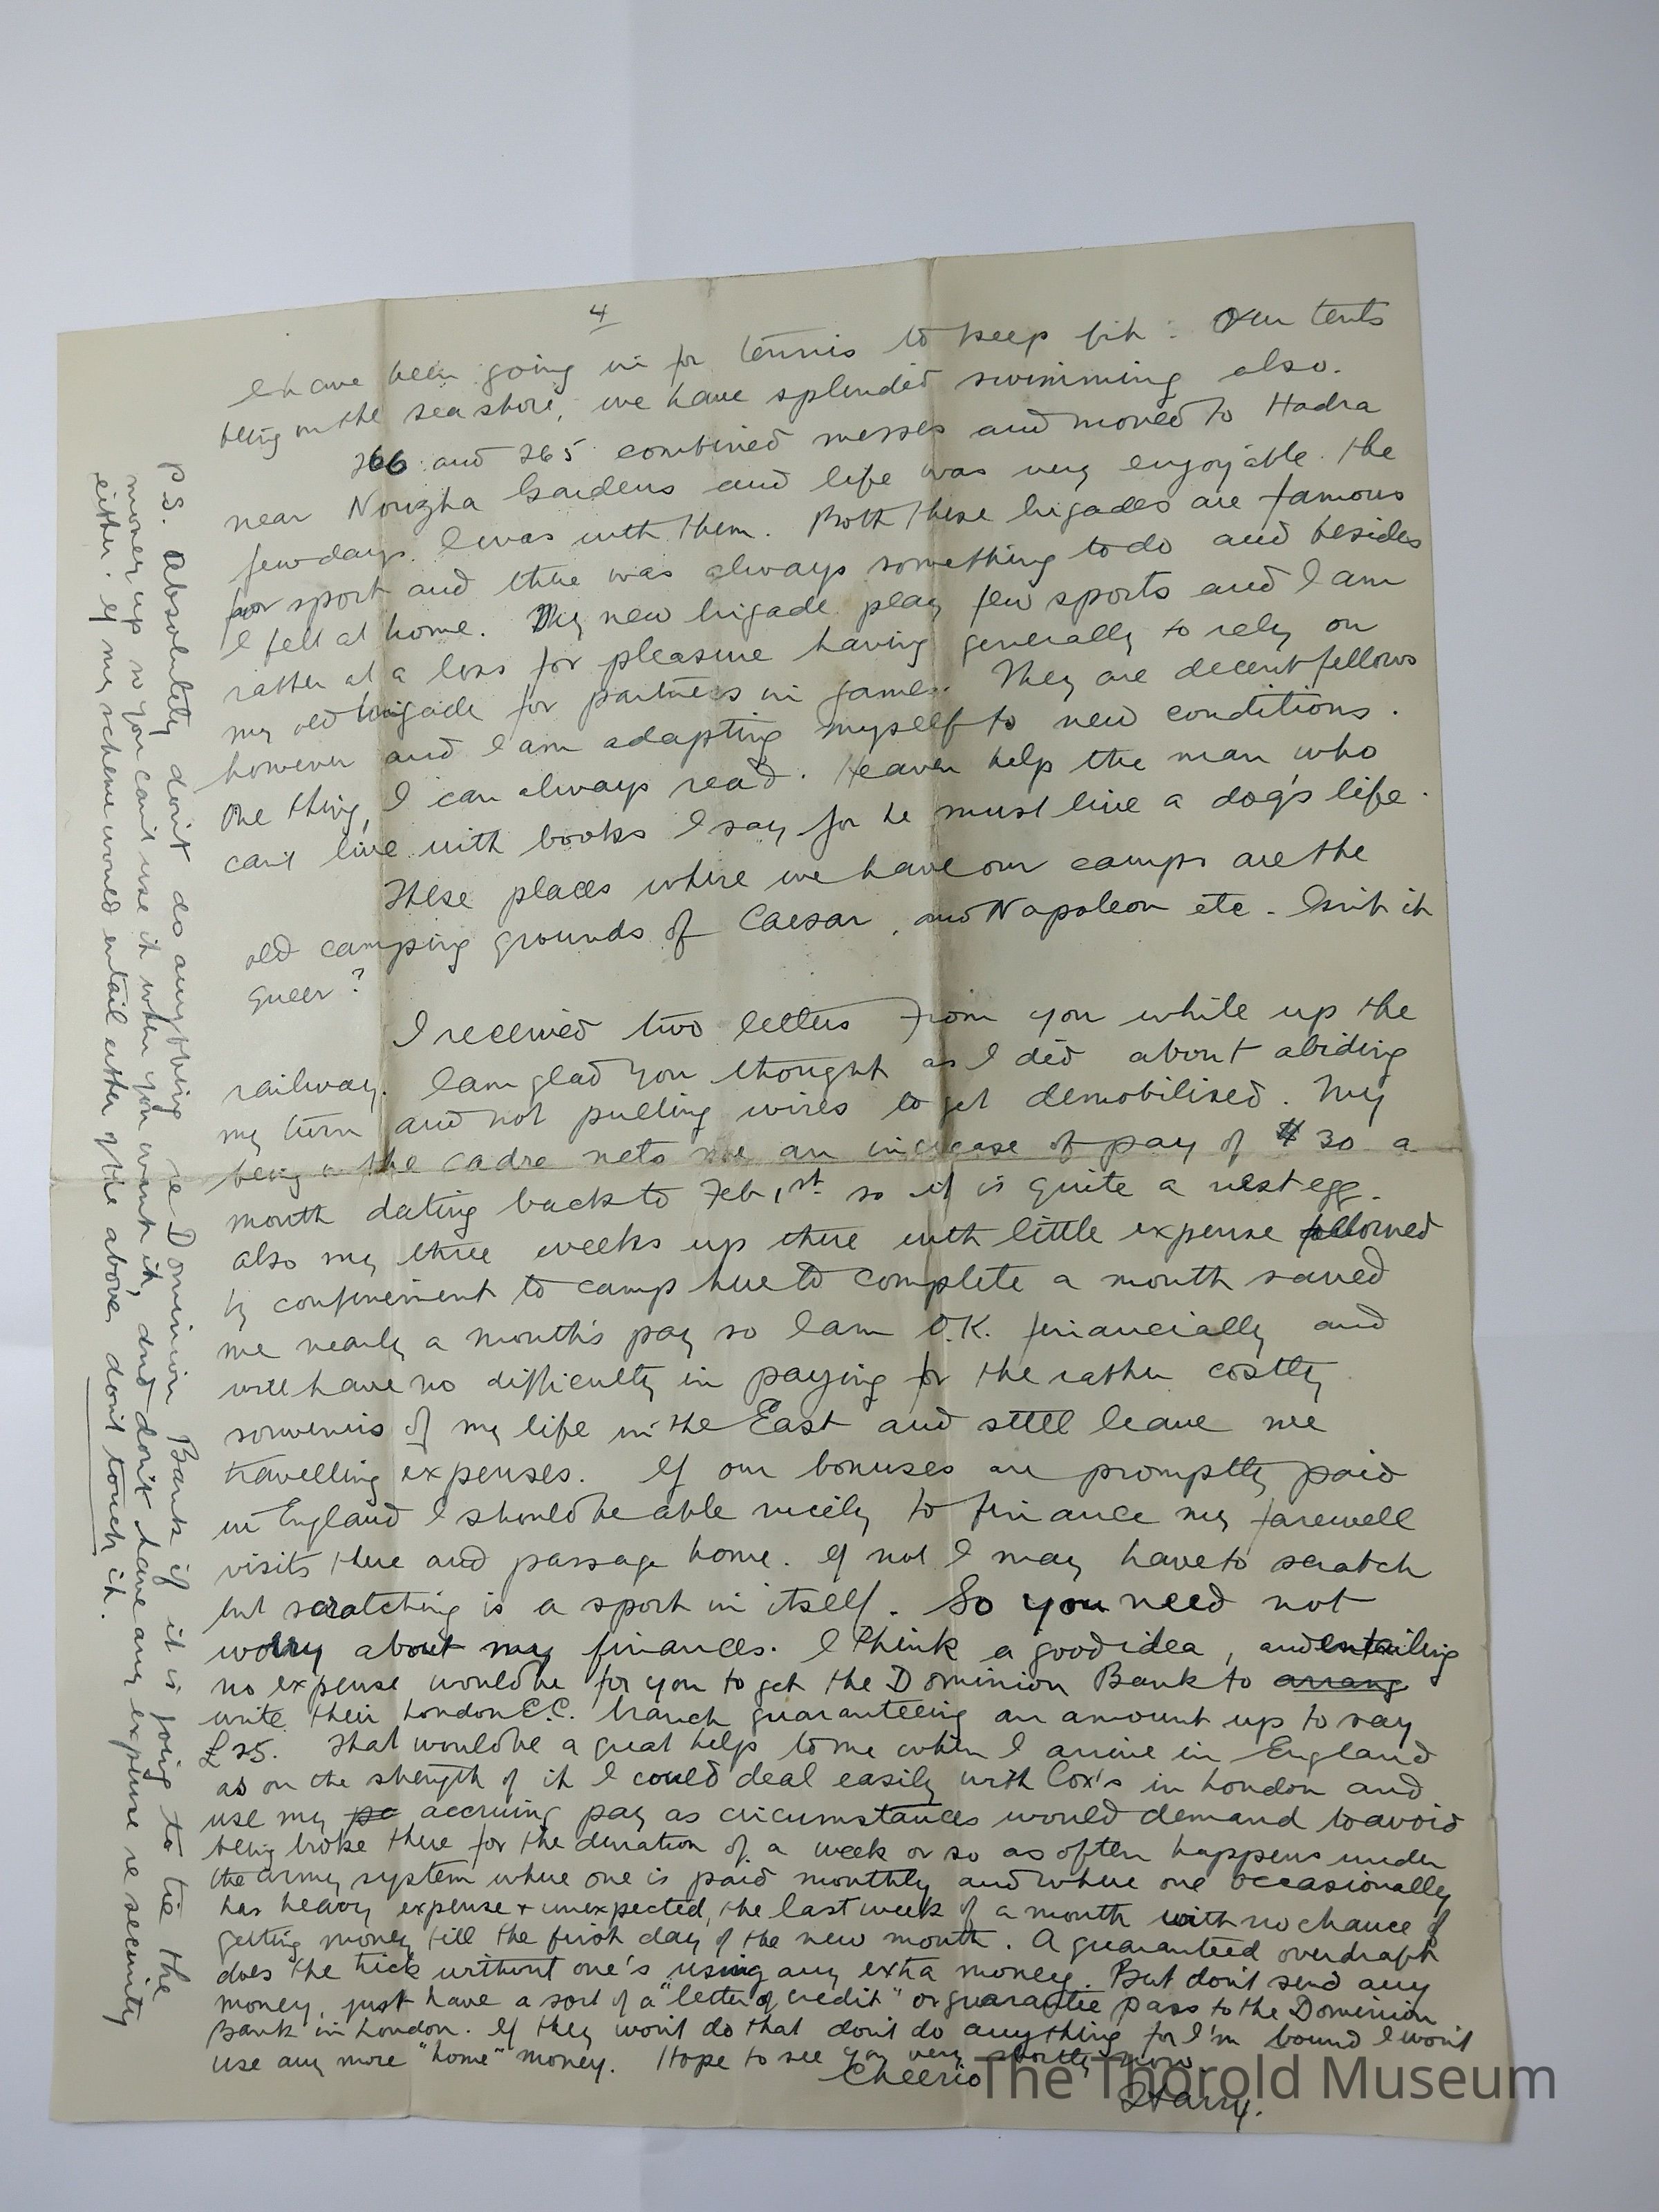 4
I have been going in for tennis to keep fit. Our tents
being on the sea shore, we have splendid swimming also.
266 and 265 combined messes and moved to Hadra
near Nouzha Gardens and life was very enjoyable the
few days I was with them. Both these brigades are famous
for sport and there was always something to do and besides
I felt at home. My new brigade play few sports and I am
rather at a loss for pleasure having generally to rely on
my old brigade for partners in games. They are decent fellows
however and I am adapting myself to new conditions.
One thing, I can always read. Heaven help the man who
can't live with books I say for he must live a dog's life.
These places where we have our camps are the
old camping grounds of Caesar, and Napoleon etc. Isn't it
queer?
I received two letters from you while up the
railway. I am glad you thought as I did about abiding
my turn and not pulling wires to get demobilised. My
being on the cadre nets me an increase of pay of $30 a
month dating back to Feb, 1st so it is quite a nest egg.
also my three weeks up there with little expense followed
by confinement to camp here to complete a month saved
me nearly a month's pay so I am O.K. financially and
will have no difficulty in paying for the rather costly
souvenirs of my life in the East and still leave me
travelling expenses. If our bonuses are promptly paid
in England I should be able nicely to finance my farewell
visits there and passage home. If not I may have to scratch
but scratching is a sport in itself. So you need not
worry about my finances. I think a good idea, and entailing
no expense would be for you to get the Dominion Bank to arrang
write their London E.C. branch guaranteeing an amount up to say
£25. That would be a great help to me when I arrive in England
as on the strength of it I could deal easily with Cox's in London and
use my pa accruing pay as circumstances would demand to avoid
being broke there for the duration of a week or so as often happens under
the army system where one is paid monthly and where one occasionally
has heavy expense + unexpected, the last week of a month with no chance of
getting money till the first day of the new month. A guaranteed overdraft
does the trick without one's using any extra money. But don't send any
money, just have a sort of a "letter of credit" or guarantee pass to the Dominion
Bank in London. If they won't do that don't do anything for I'm bound I won't
use any more "home" money. Hope to see you very shortly now.
Cheerio
Harry.
P.S. Absolutely don't do anything re Dominion Bank if it is going to tie the
money up so you can't use it when you want it, and don't have any expense re security
either. If my scheme would entail either of the above, don't touch it.
The Thorold Museum